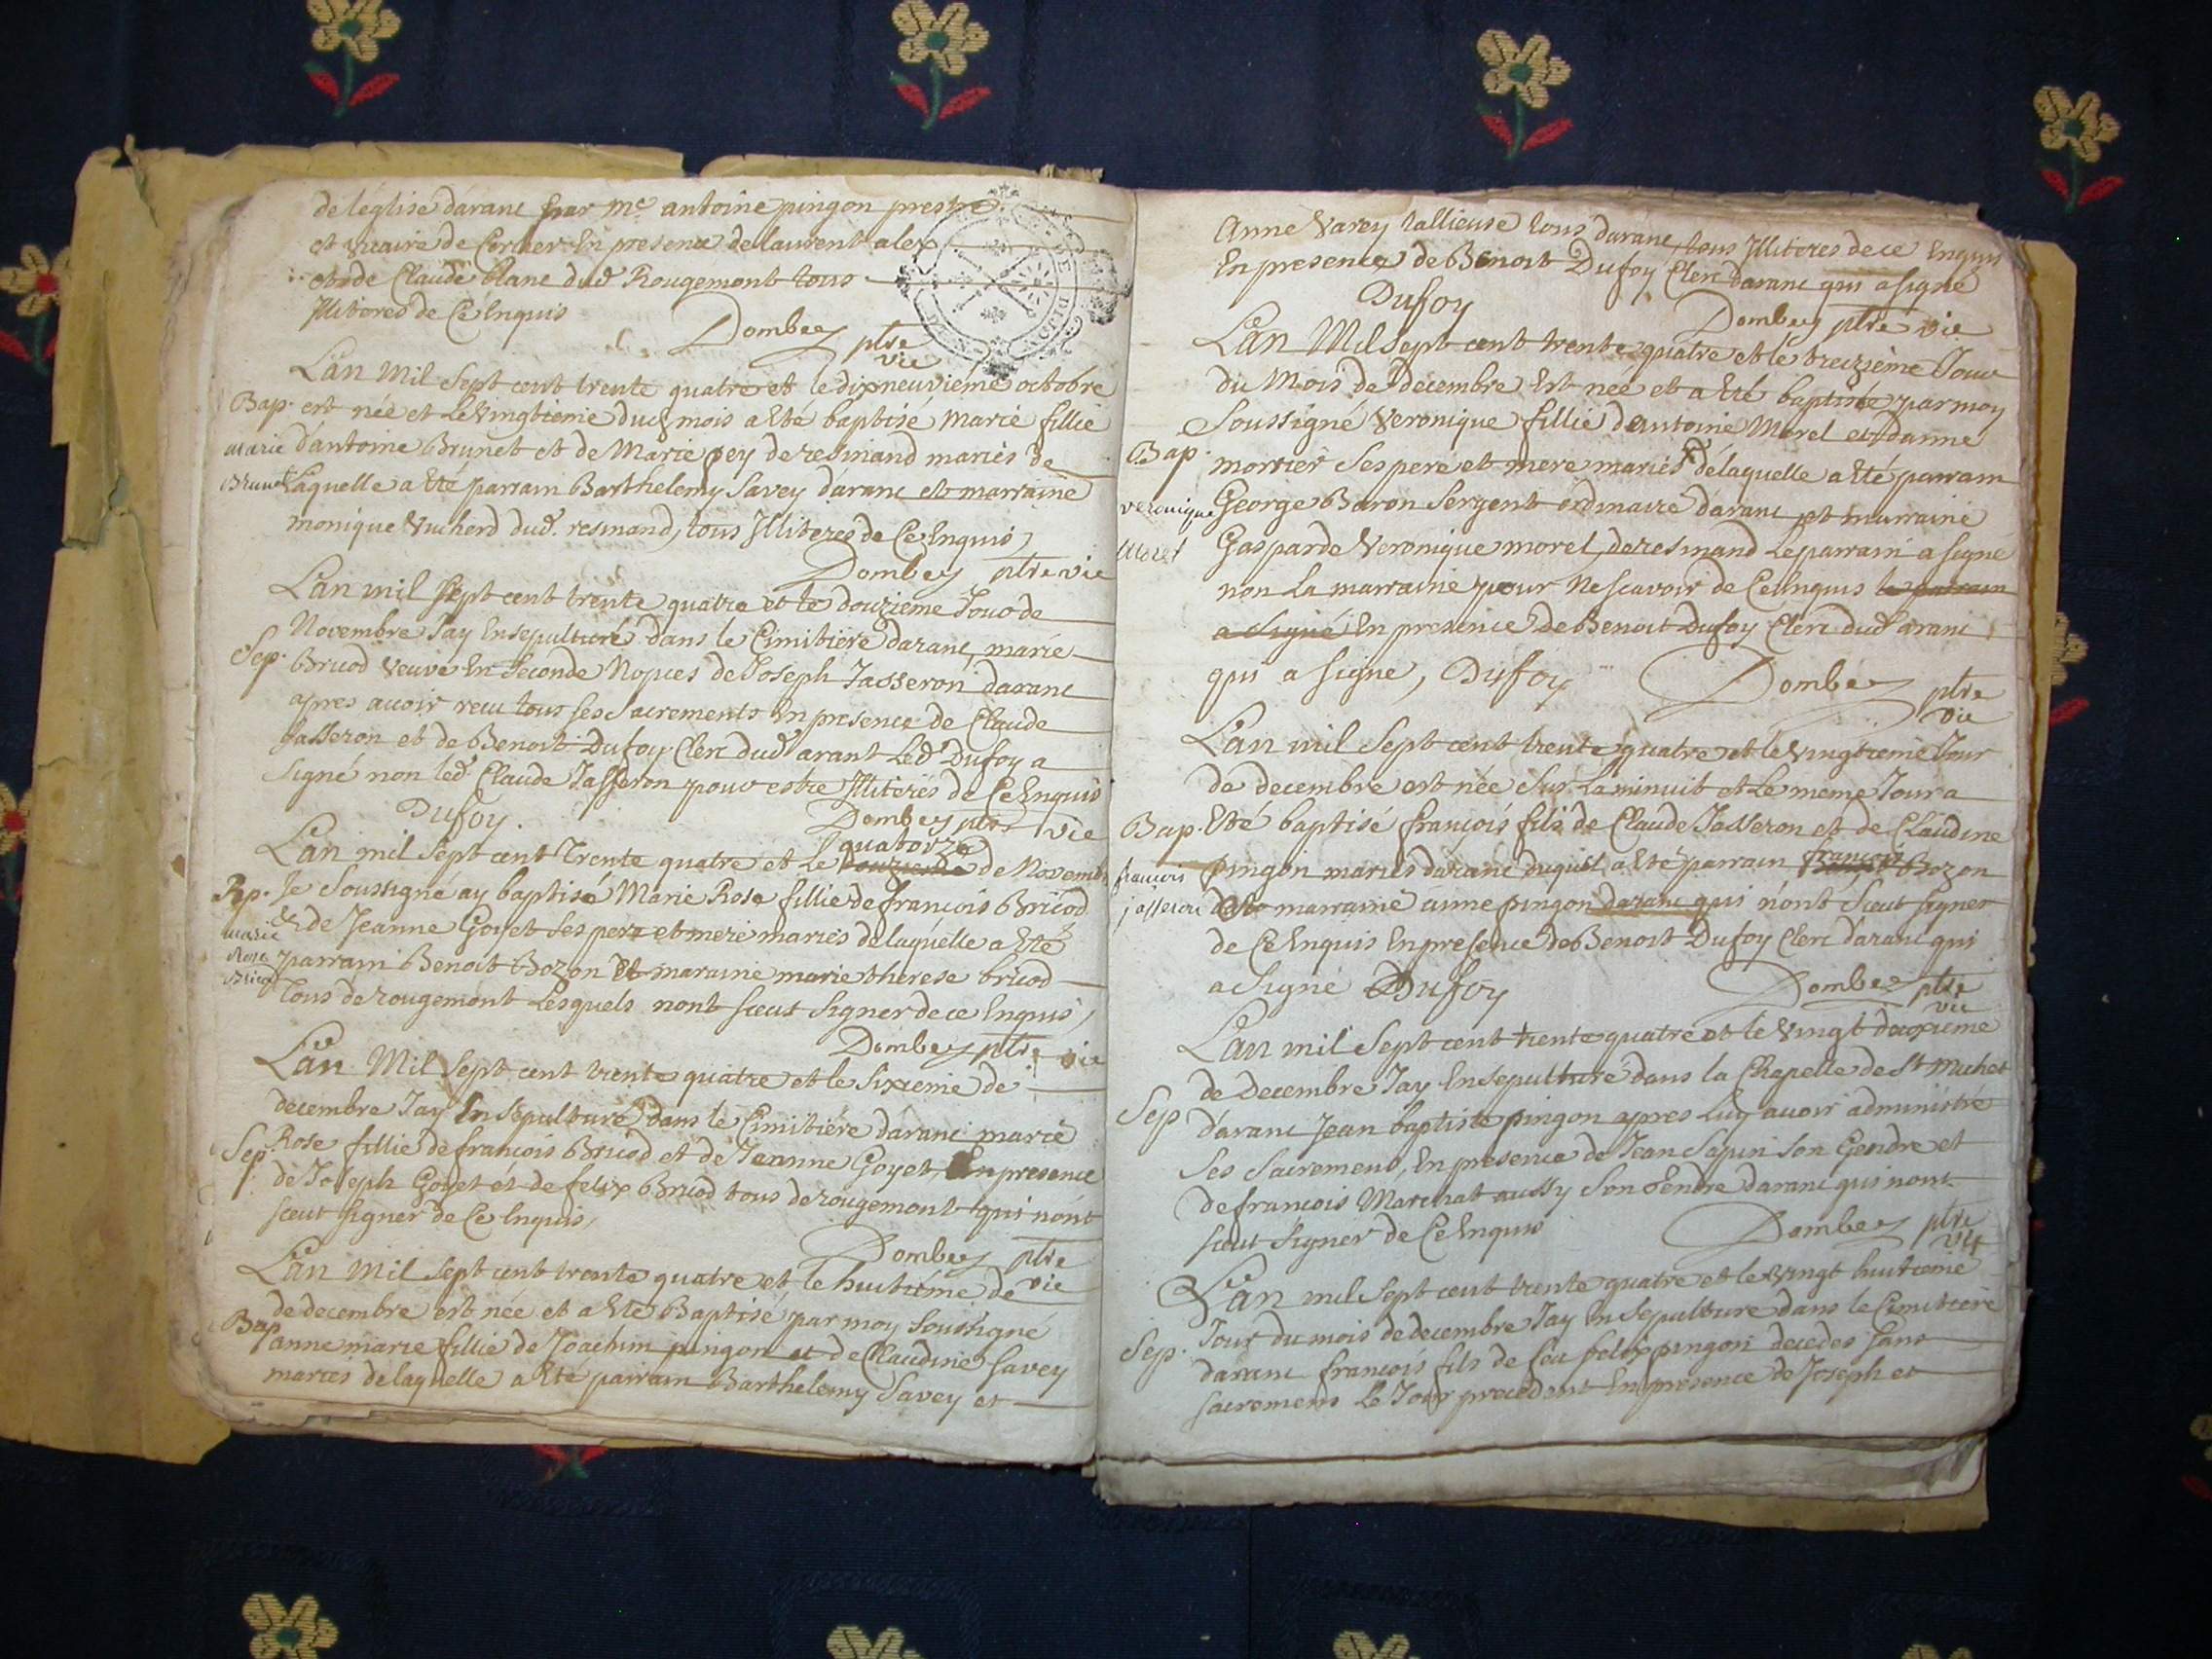 de l'église d'aranc par Me antoine pingon prestre
et vicaire de Corlier En presence de laurent alex
et de Claude blanc dud Rougemont tous
Illiteres de Ce Enquis
Dombey ptre
vic
L'an mil sept cent trente quatre et le dixneuviéme octobre
Bap. est née et le vingtieme dud mois a Eté baptisé Marie fillie
marie d'antoine Brunet et de Marie pey de resinand mariés de
Brunet Laquelle a Eté parrain Barthelemy Savey d'aranc et marraine
monique Vucherd dud. resinand, tous Illiteres de Ce Enquis,
Dombey ptre vic
L'an mil sept cent trente quatre et le douzieme Jour de
Novembre J'ay Ensepulturé dans le Cimitiere d'aranc, marie
Sep. Bricod veuve En seconde Nopces de Joseph Jasseron d'aranc
apres avoir recu tous ses sacrements En presence de Claude
Jasseron et de Benoit Dufoy Clerc dud arant Led Dufoy a
signé non led Claude Jasseron pour estre Illiteres de Ce Enquis
Dufoy. Dombey ptre vic
quatorze
L'an mil sept cent trente quatre et le douzieme de Novemb
Bap. Je Soussigné ay baptisé Marie Rose fillie de francois Bricod
marie & de Jeanne Goyet ses pere et mere mariés de laquelle a Eté
Rose parrain Benoit Bozon Et maraine marie therese bricod
Bricod tous de rougemont Lesquels nont sceut signer de ce Enquis,
Dombey ptre vic
L'an Mil sept cent trente quatre et le sixieme de
decembre J'ay En sépulturé dans le Cimitiére d'aranc marie
Sep. Rose fillie de francois Bricod et de Jeanne Goyet, En presence
de Joseph Goyet et de felix Bricod tous de rougemont qui n'ont
sceut signer de Ce Enquis,
Dombey ptre
vic
L'an Mil sept cent trente quatre et le huitiéme de
de decembre est née et a Eté Baptisé par moy soussigné
Bap anne marie fillie de Joachim pingon et de Claudine Savey
mariés de laquelle a Eté parrain Barthelemy Savey et
Anne Varey tallieuse tous d'aranc, tous Illiteres de ce Enquis
En presence de Benoit Dufoy Clerc d'aranc qui a signé
Dufoy Dombey ptre vic
L'an Mil sept cent trente quatre et le treizième Jour
du Mois de decembre Est née et a Eté baptisée par moy
Soussigné Veronique fillie d'antoine Morel et d'anne
Bap. morrier ses pere et mere mariés de laquelle a Eté parrain
veronique George Baron Sergent ordinaire d'aranc et marraine
Morel Gasparde Veronique morel, de resinand Le parrain a signé
non La marraine pour Ne scavoir de Ce Enquis le parrain
a signé En presence de Benoit Dufoy Clerc dud aranc
qui a signe, Dufoy Dombey ptre
vic
L'an mil sept cent trente quatre et le vingtieme Jour
de decembre est née sur La minuit et Le meme Jour a
Bap. Eté baptisé francois fils de Claude Jasseron et de Claudine
francois
francois pingon mariés d'aranc duquel a Eté parrain Bozon
jasseron marraine anne pingon d'aranc qui n'ont sceut signer
de Ce Enquis En presence de Benoit Dufoy Clerc d'aranc qui
a signé Dufoy Dombey ptre
vic
L'an mil sept cent trente quatre et le vingt deuxieme
de decembre J'ay Ensepulturé dans la Chapelle de St michel
Sep d'aranc Jean baptiste pingon apres Luy avoir administré
ses sacremens, En presence de Jean Sapin son Gendre et
de francois Marchat aussy son Gendre d'aranc qui nont
sceut signer de Ce Enquis Dombey ptre
vic
L'an mil sept cent trente quatre et le vingt huitieme
Jour du mois de decembre J'ay En sepulturé dans le Cimitiere
Sep. d'aranc francois fils de feu felix pingon decedes sans
sacremens Le Jour precedent En presence de Joseph et